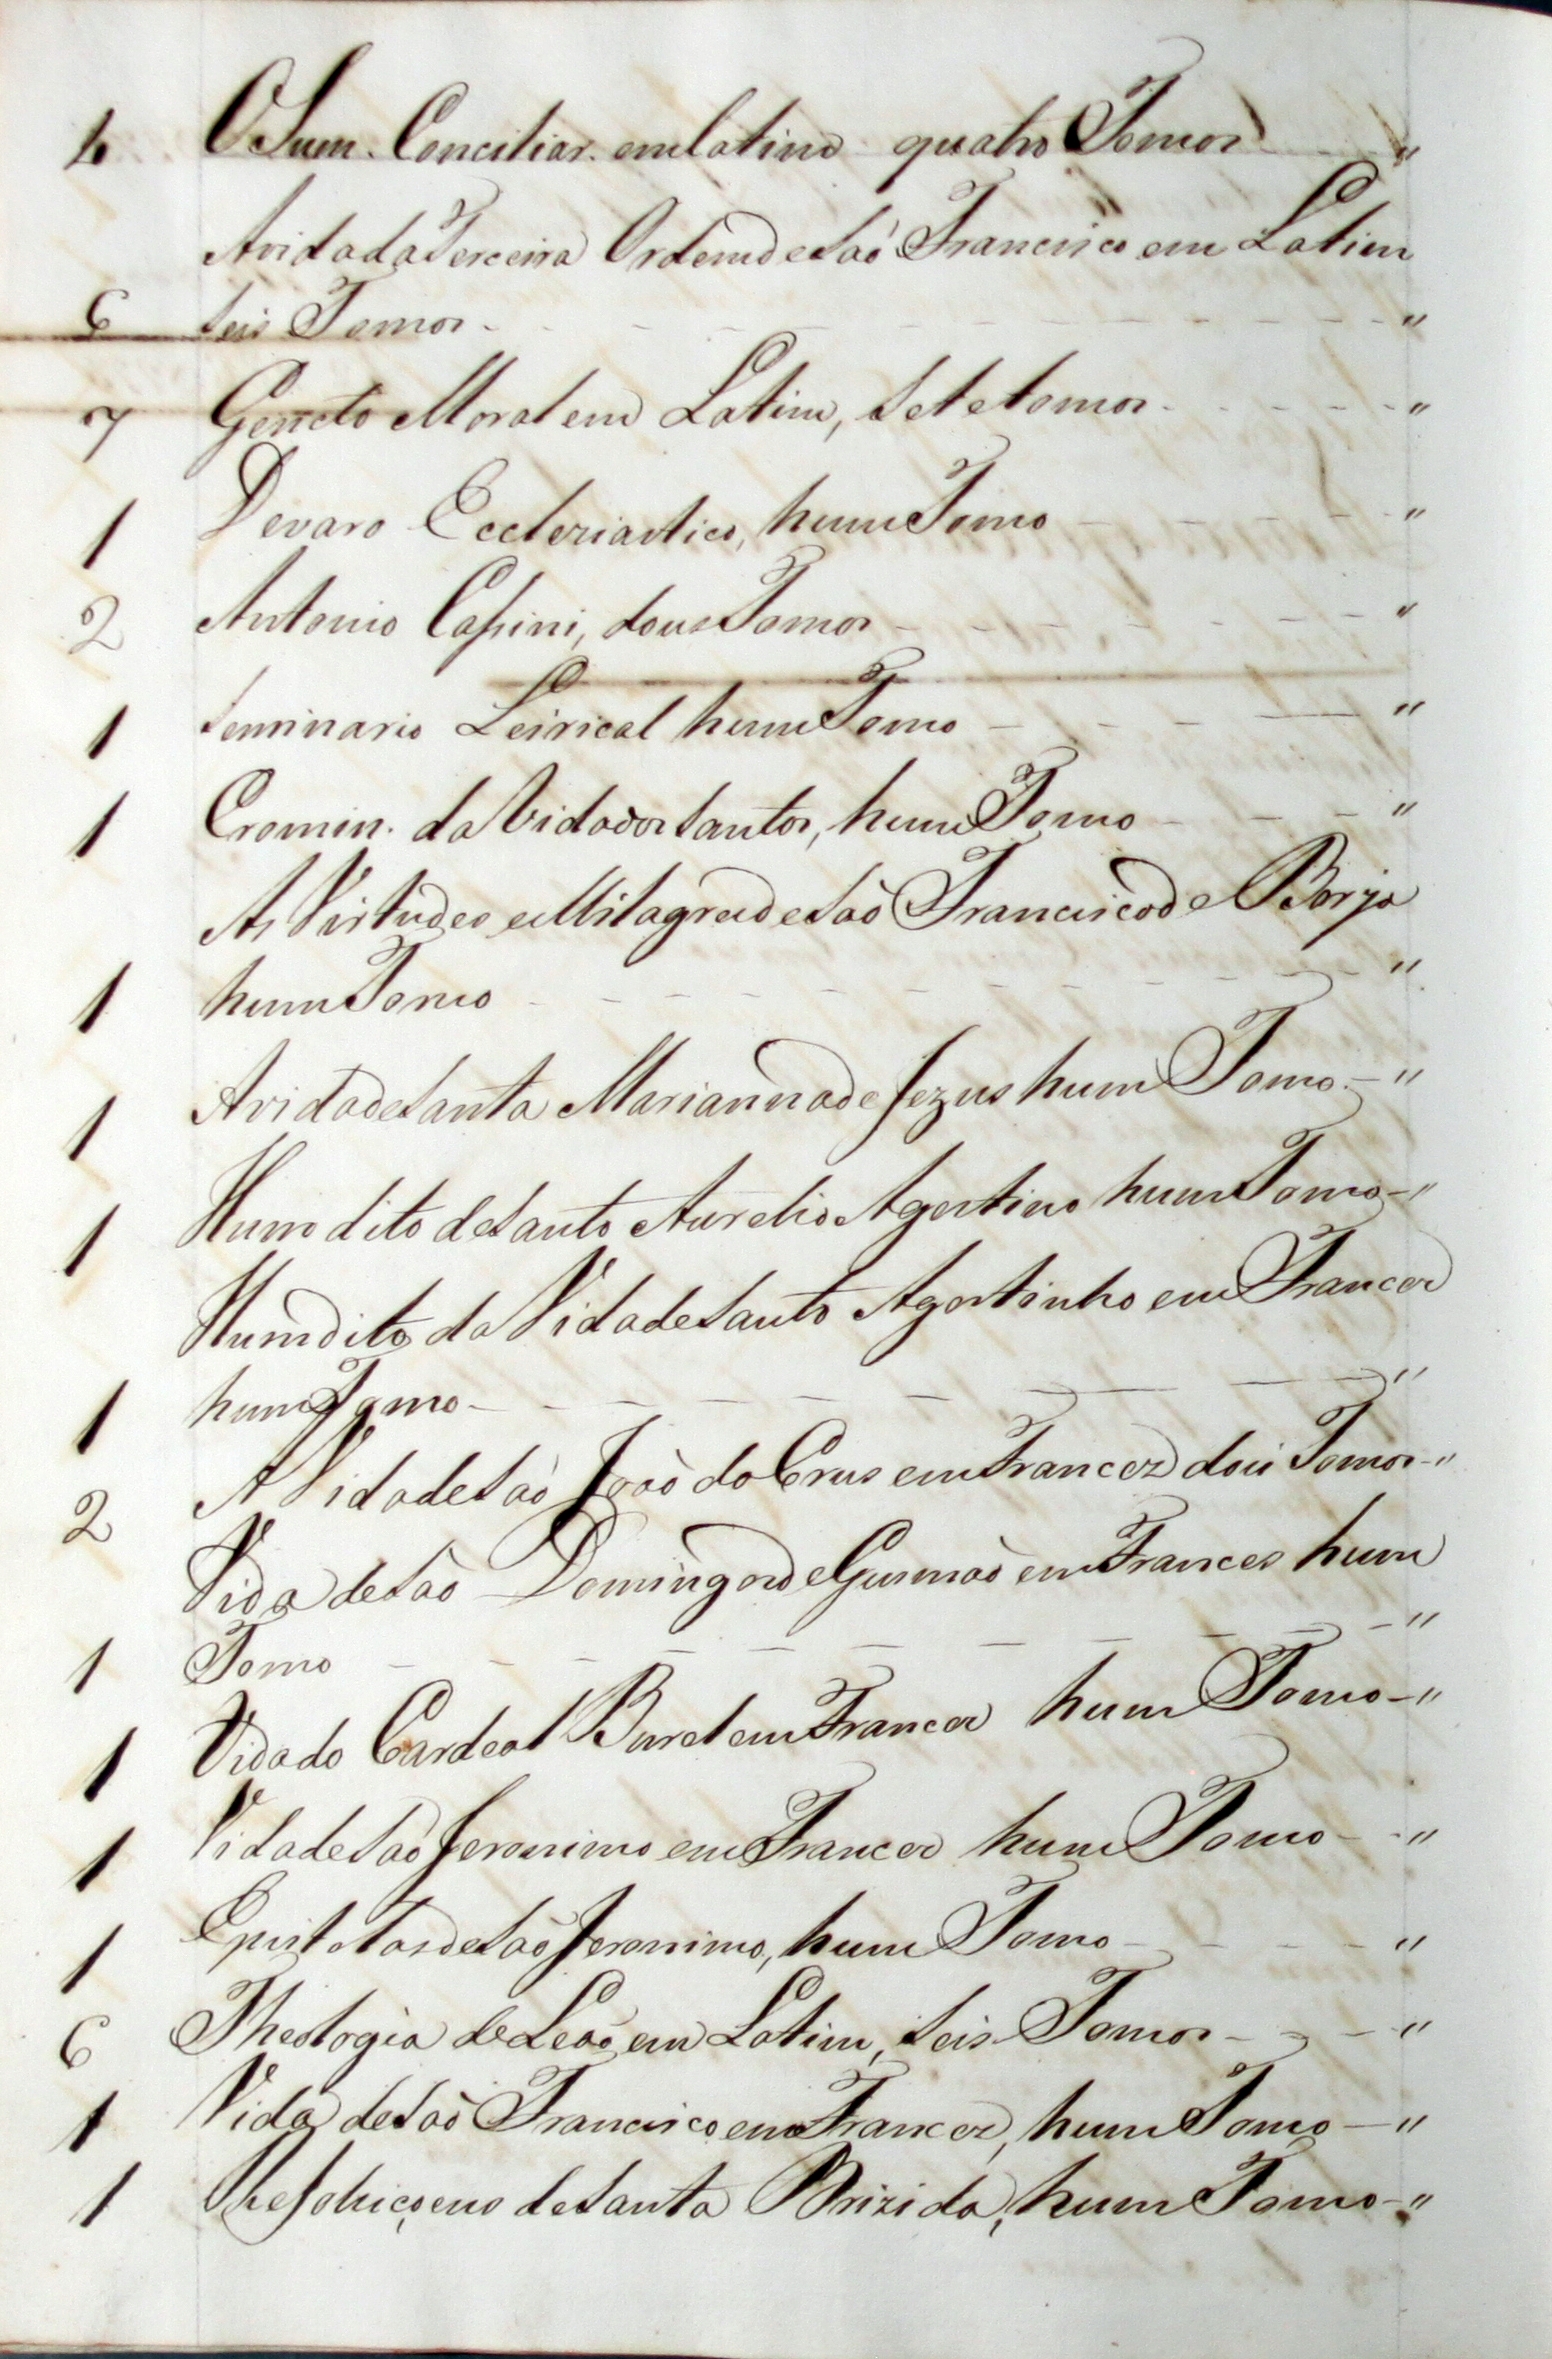 4 O Sum. Conciliar. em latino quatro Tomos "
A vida da Terceira Ordem de Saõ Francisco em Latim
6 seis Tomos - - - - - "
7 Geneto Moral em Latim, sete tomos - - - - "
1 Devaro Ecclesiastico, hum Tomo - - - - "
2 Antonio Casini, dous Tomos - - - - "
1 Seminario Leirical hum Tomo - - - - "
1 Cromin. da Vida dos Santos, hum Tomo - - - "
As Virtudes e Milagres de Saõ Francisco de Borja
1 hum Tomo - - - - - "
1 A vida de Santa Marianna de Jezus hum Tomo - "
1 Hum dito de Santo Aurelio Agostino hum Tomo - "
Hum dito da Vida de Santo Agostinho em Francez
1 hum Tomo - - - - - "
2 A Vida de Saõ Joaõ da Crus em Francez dois Tomos - "
Vida de Saõ Domingos de Gusmaõ em Frances hum
1 Tomo - - - - - "
1 Vida do Cardeal Burel em Francez hum Tomo - "
1 Vida de Saõ Jeronimo em Francez hum Tomo - - "
1 Epistolas de Saõ Jeronimo, hum Tomo - - - - "
6 Theologia de Leaõ em Latim, seis Tomos - - - "
1 Vida de Saõ Francisco em Francez, hum Tomo - "
1 de Santa Brizida, hum Tomo - "